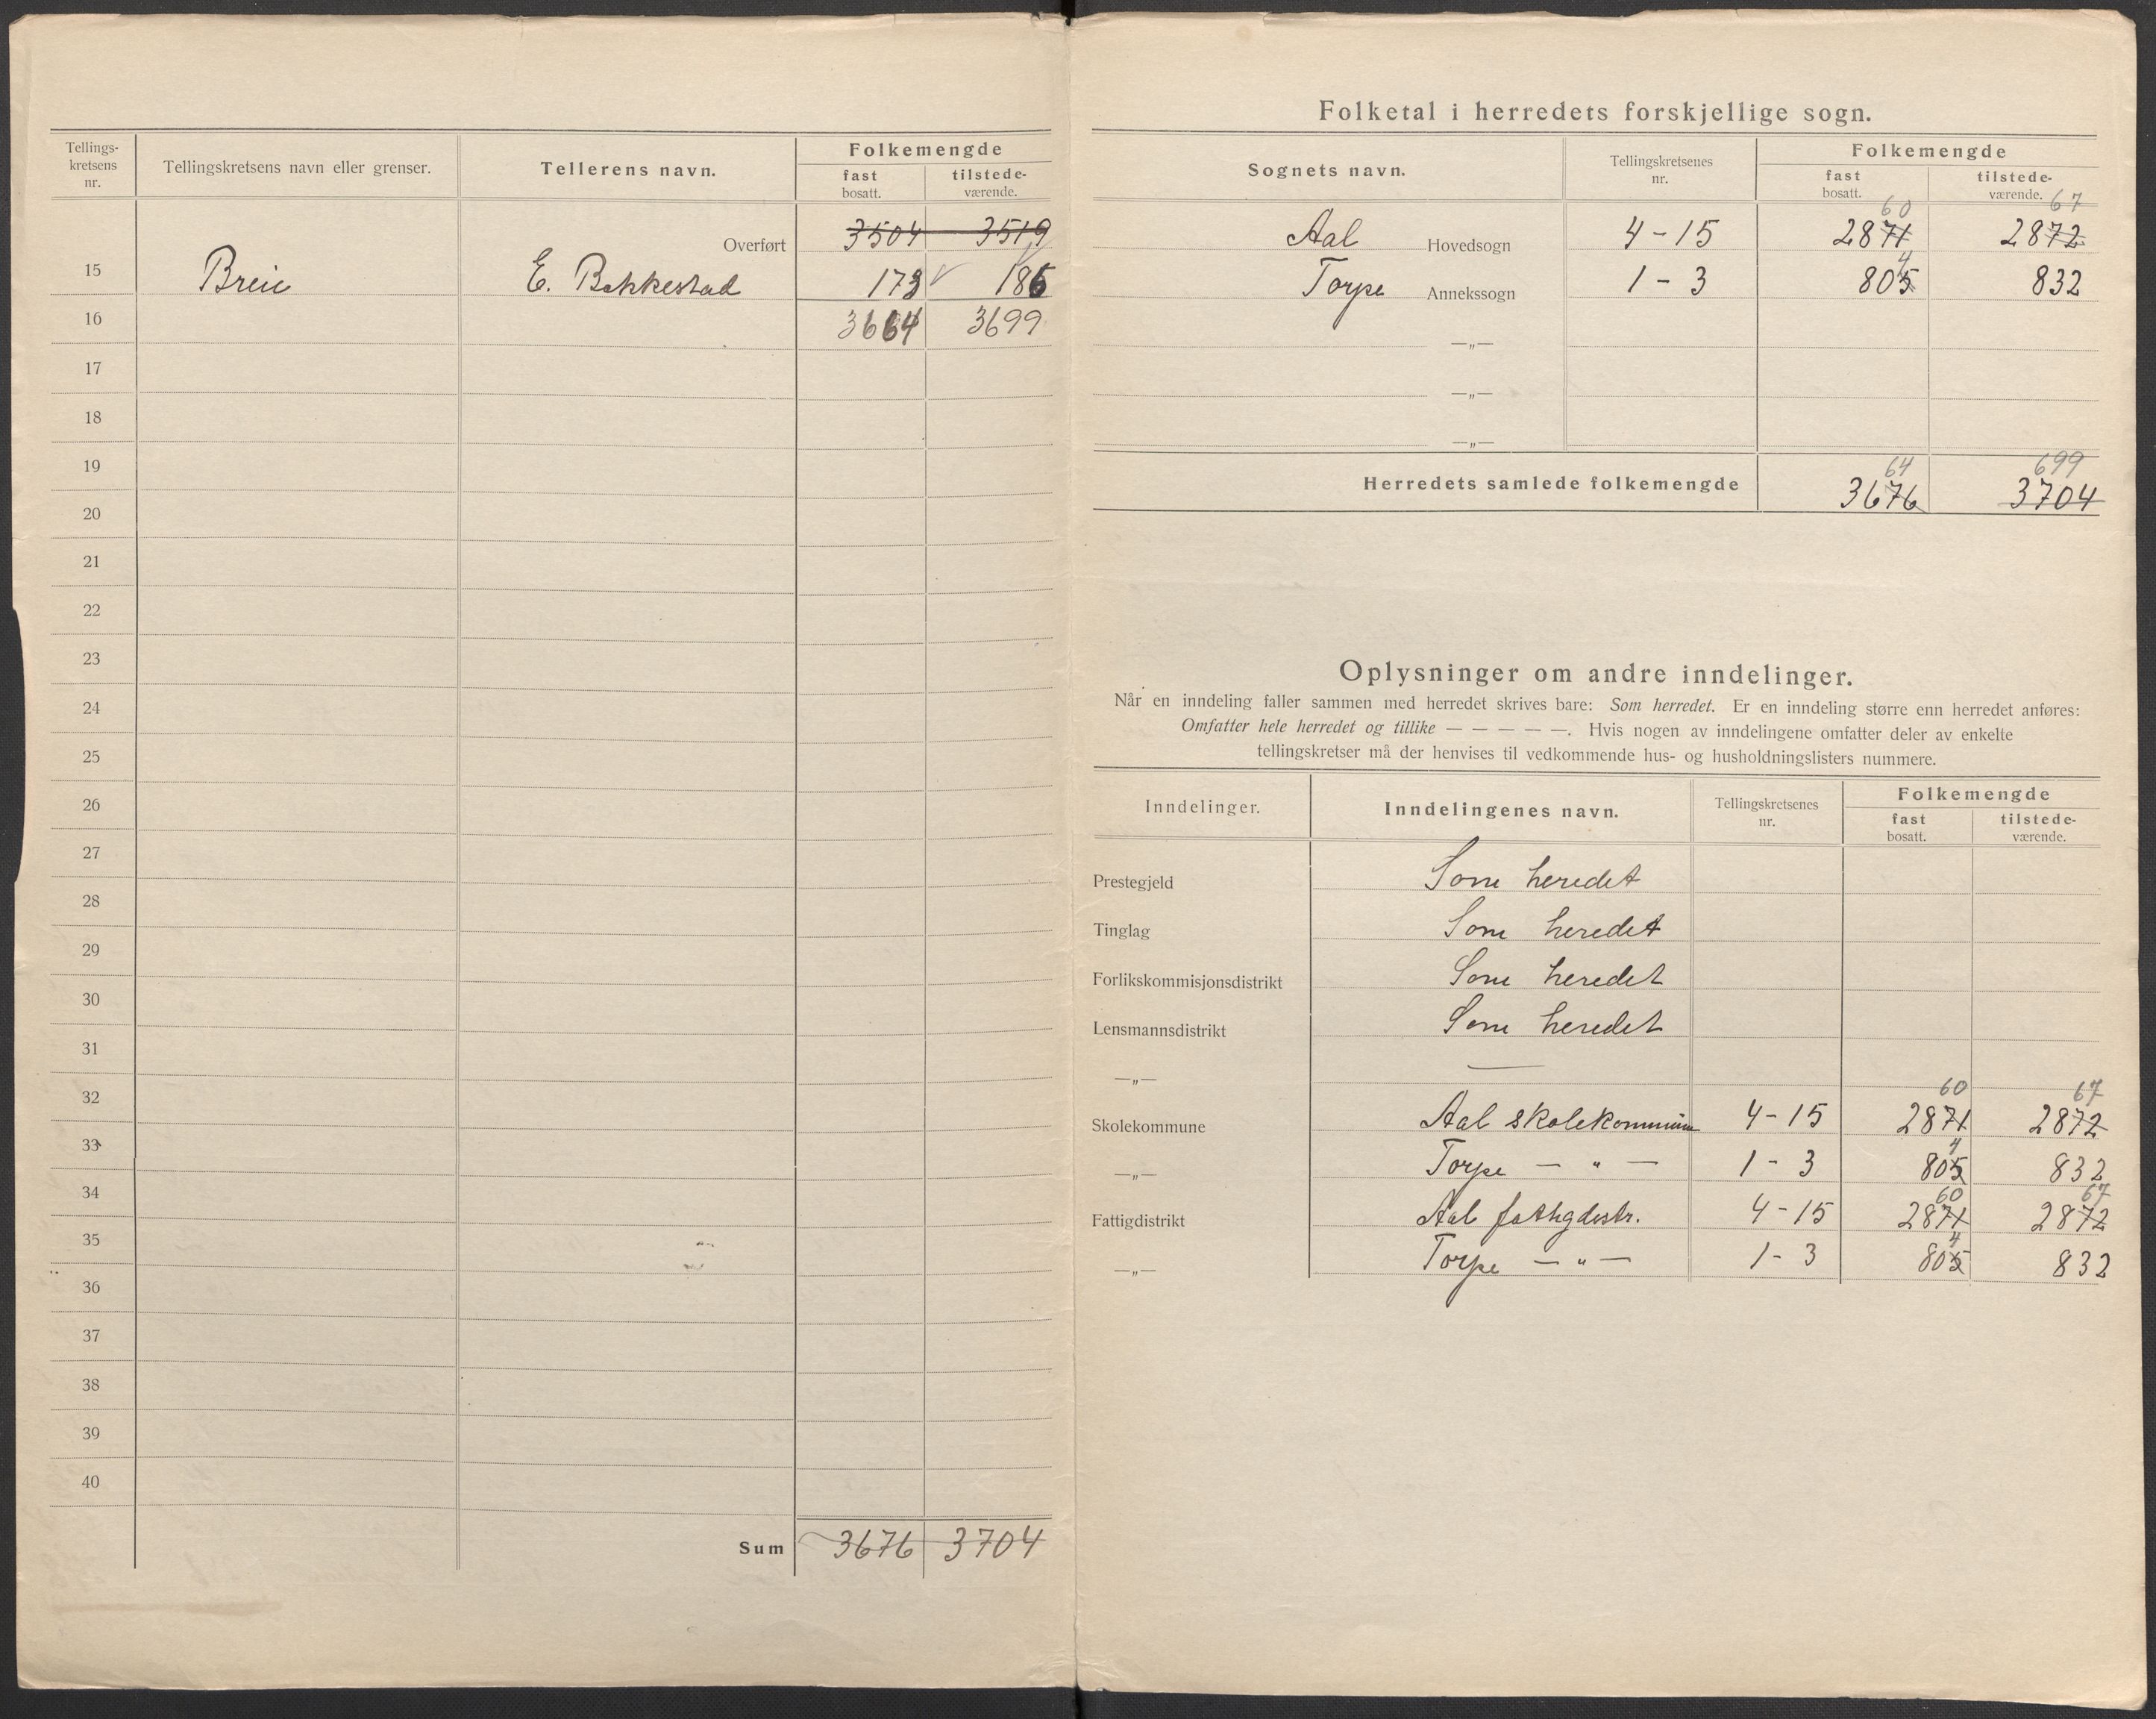 Tellings-
kretsens
nr.
Tellingskretsens navn eller grenser.
Tellerens navn.
Folkemengde
fast
bosatt.
tilstede-
værende.
Overført 3504 3519
15 Breie E. Bakkestad 173 186
16 3664 3699
17
18
19
20
21
22
23
24
25
26
27
28
29
30
31
32
33
34
35
36
37
38
39
40
Sum 3676 3704
Folketal i herredets forskjellige sogn.
Sognets navn.
Tellingskretsenes
nr.
Folkemengde
fast
bosatt.
tilstede-
værende.
60 67
Aal Hovedsogn 4-15 2871 2872
4
Torpe Annekssogn 1-3 805 832
—„—
—„—
—„—
64 699
Herredets samlede folkemengde 3676 3704
Oplysninger om andre inndelinger.
Når en inndeling faller sammen med herredet skrives bare: Som herredet. Er en inndeling større enn herredet anføres:
Omfatter hele herredet og tillike — — — — —. Hvis nogen av inndelingene omfatter deler av enkelte
tellingskretser må der henvises til vedkommende hus- og husholdningslisters nummere.
Inndelinger.
Inndelingenes navn.
Tellingskretsenes
nr.
Folkemengde
fast
bosatt.
tilstede-
værende.
Prestegjeld Som heredet
Tinglag Som heredet
Forlikskommisjonsdistrikt Som heredet
Lensmannsdistrikt Som heredet
—„— —
60 67
Skolekommune Aal skolekommune 4-15 2871 2872
4
—„— Torpe — „ — 1-3 805 832
60 67
Fattigdistrikt Aal fattigdistr. 4-15 2871 2872
4
—„— Torpe — „ — 1-3 805 832